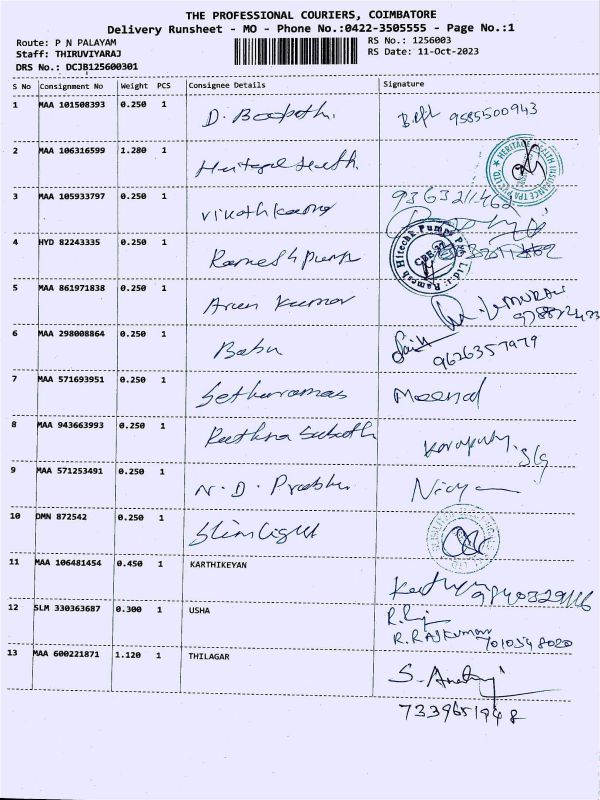 THE PROFESSIONAL COURIERS, COIMBATORE
Delivery Runsheet - MO - Phone No.:0422-3505555 - Page No.:1
Route: P N PALAYAM
Staff: THIRUVIYARAJ
DRS No.: DCJB125600301
RS No.: 1256003
RS Date: 11-Oct-2023
S No Consignment No Weight PCS Consignee Details Signature
1 MAA 101508393 0.250 1 D. Boopathi. 9585500943
2 MAA 106316599 1.280 1 Heritage Health
3 MAA 105933797 0.250 1 9363211462
4 HYD 82243335 0.250 1 Ramesh pump
5 MAA 861971838 0.250 1 Arun Kumar
6 MAA 298008864 0.250 1 Babu 9626357979
7 MAA 571693951 0.250 1 Sethuraman Meena
8 MAA 943663993 0.250 1 Rathna
9 MAA 571253491 0.250 1 N. D. Prabhu
10 DMN 872542 0.250 1 Slimlight
11 MAA 106481454 0.450 1 KARTHIKEYAN
12 SLM 330363687 0.300 1 USHA
R. RAJKUMAR
7010548020
13 MAA 600221871 1.120 1 THILAGAR
7339651948